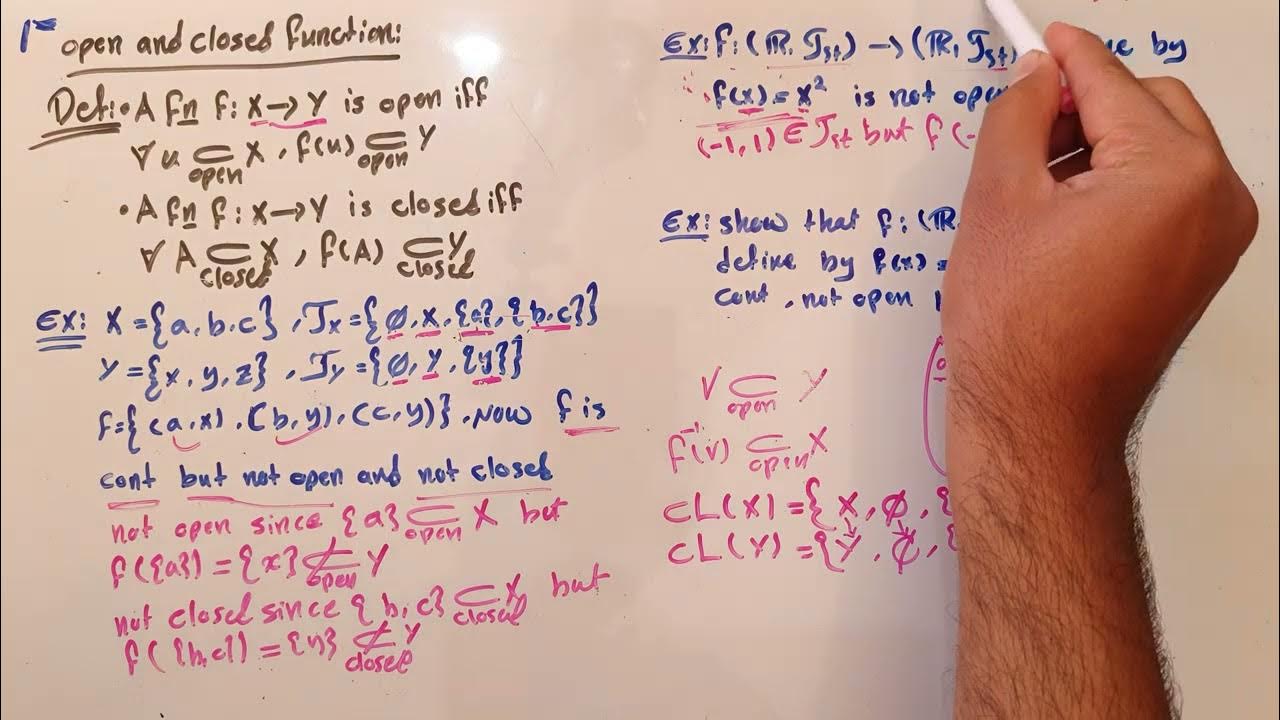 open and closed function:
Def: • A fn f: X→Y is open iff
∀ u ⊂ X , f(u) ⊂ Y
open open
• A fn f: X→Y is closed iff
∀ A ⊂ X , f(A) ⊂ Y
closed closed
Ex: X = {a, b, c} , Tx = {∅, X, {a}, {b, c}}
Y = {x, y, z} , Ty = {∅, Y, {y}}
f = {(a, x), (b, y), (c, y)} . Now f is
cont but not open and not closed
not open since {a} ⊂ X but
open
f({a}) = {x} ⊄ Y
open
not closed since {b, c} ⊂ X but
closed
f({b,c}) = {y} ⊄ Y
closed
Ex: f: (ℝ, Tst) → (ℝ, Tst) by
f(x) = x² is not open
(-1, 1) ∈ Tst but f(-
Ex: show that f: (ℝ
define by f(x) =
cont , not open
V ⊂ Y
open
f⁻¹(v) ⊂ X
open
CL(X) = {X, ∅, {
CL(Y) = {Y, ∅, {